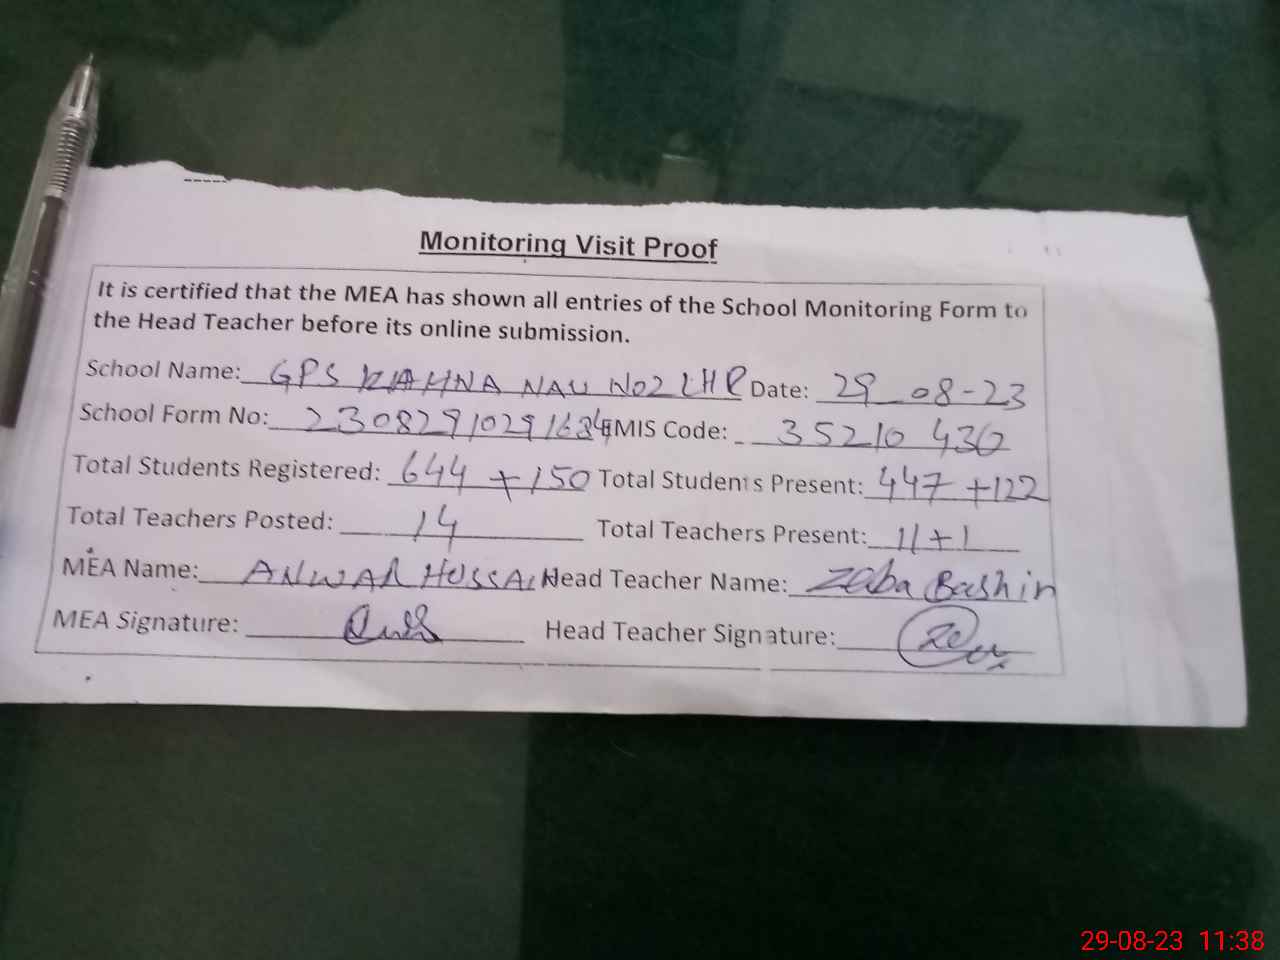 Monitoring Visit Proof
It is certified that the MEA has shown all entries of the School Monitoring Form to
the Head Teacher before its online submission.
School Name: GPS KAHNA NAU No2 LHR Date: 29-08-23
School Form No: 23082910291684 EMIS Code: 35210430
Total Students Registered: 644 +150 Total Students Present: 447 +122
Total Teachers Posted: 14 Total Teachers Present: 11+1
MEA Name: ANWAR HUSSAIN Head Teacher Name: Zeba Bashir
MEA Signature: Head Teacher Signature:
29-08-23 11:38